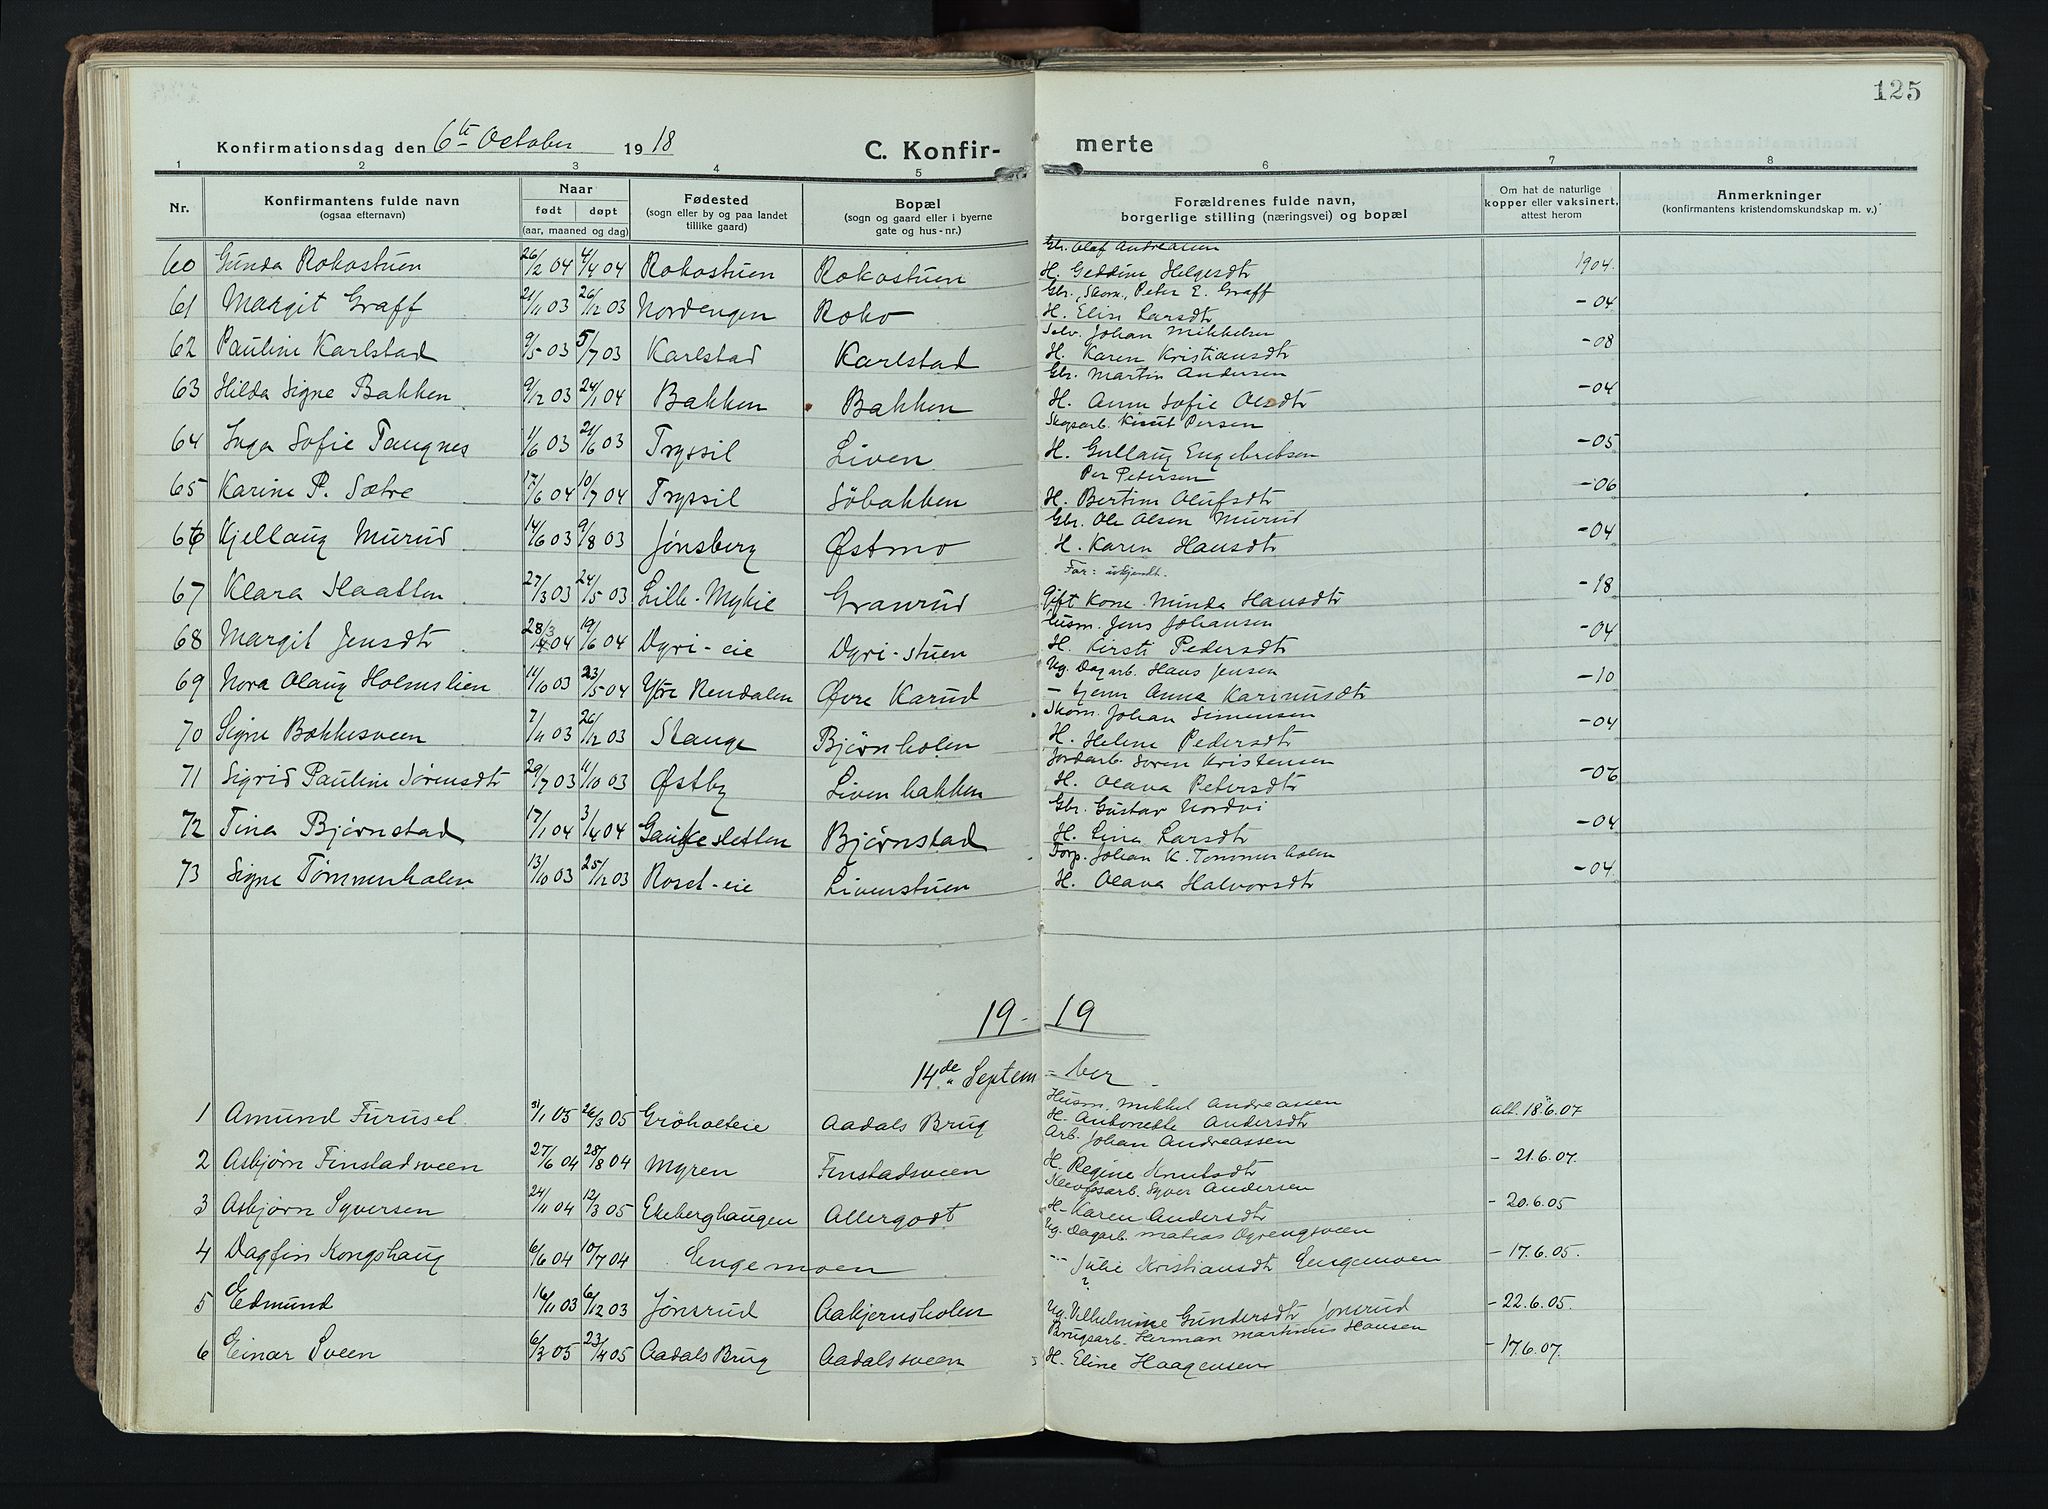 125
Konfirmationsdag den 6te October 1918
C. Konfirmerte
1 2 3 4 5 6 7 8
Nr. Konfirmantens fulde navn (ogsaa efternavn) Naar født døpt (aar, maaned og dag) Fødested (sogn eller by og paa landet tillike gaard) Bopæl (sogn og gaard eller i byerne gate og hus-nr.) Forældrenes fulde navn, borgerlige stilling (næringsvei) og bopæl Om hat de naturlige kopper eller vaksinert, attest herom Anmerkninger (konfirmantens kristendomskundskap m. v.)
Gbr. Olaf Andreassen
60 Gunda Rokostuen 26/2 04 4/4 04 Rokostuen Rokostuen H. Geddine Helgesdtr 1904.
Gbr., Skom., Peter E. Graff
61 Margit Graff 21/11 03 26/12 03 Nordengen Roko H. Elin Larsdtr - 04
Selv. Johan Mikkelsen
62 Pauline Karlstad 9/5 03 5/7 03 Karlstad Karlstad H. Karen Kristiansdtr - 08
Gbr. Martin Andersen
63 Hilda Signe Bakken 9/12 03 24/1 04 Bakken Bakken H. Anne Sofie Olsdtr - 04
Skogsarb. Knut Persen
64 Inga Sofie Tangnes 1/6 03 21/6 03 Trysil Liven H. Gullaug Engebretsen - 05
Per Petersen
65 Karine P. Sætre 17/6 04 10/7 04 Tryssil Söbakken H. Bertine Olufsdtr - 06
Gbr. Ole Olsen Murud
66 Kjellaug Murud 14/6 03 9/8 03 Jønsberg Østmo H. Karen Hansdtr - 04
Far: ukjendt.
67 Klara Slaatten 27/3 03 24/5 03 Lille-Mykie Granrud Gift Kone Minda Hansdtr - 18
Husm. Jens Johansen
68 Margit Jensdtr 28/3 04 19/6 04 Dyri-eie Dyri-stuen H. Kirsti Pedersdtr - 04
Ug. Dagarb. Hans Jensen
69 Nora Olaug Holmslien 11/10 03 23/5 04 Ytre Rendalen Øvre Karud - tjenr Anna Karinusdtr - 10
Skom. Johan Simensen
70 Signe Bækkesveen 7/11 03 26/12 03 Stange Bjørnholen H. Helene Pedersdtr - 04
Jordarb. Søren Kristensen
71 Sigrid Pauline Sørensdtr 29/7 03 11/10 03 Østby Livenbakken H. Olava Petersdtr - 06
Gbr. Gustav Nordvi
72 Tina Bjørnstad 17/1 04 3/4 04 Gaukesletten Bjørnstad H. Lina Larsdtr - 04
Torp. Johan K. Tømmerholen
73 Signe Tømmerholen 13/10 03 25/12 03 Roset-eie Livenstuen H. Olava Halvorsdtr - 04
19-19
14de September
Husm. Mikkel Andreassen
1 Amund Furuset 31/1 05 26/3 05 Gröholteie Aadals Brug H. Antonette Andersdtr att. 18.6.07
Arb. Johan Andreassen
2 Asbjørn Finstadsveen 27/6 04 28/8 04 Myren Finstadsveen H. Regine Knutsdtr - 21.6.07.
Klevfosarb. Syver Andersen
3 Asbjørn Syversen 24/11 04 12/3 05 Ekeberghaugen Allergodt H. Karen Andersdtr - 20.6.05
Ug. Dagarb. Matias Dyrengsveen
4 Dagfin Kongshaug 6/6 04 10/7 04 Engemoen - - Julie Kristiansdtr Engemoen - 17.6.05.
?
5 Edmund 16/11 03 6/12 03 Jönsrud Aakjernsholen Ug. Vilhelmine Gundersdtr Jönsrud - 22.6.05.
Brugsarb. Herman Martinius Hansen
6 Einar Sveen 6/3 05 23/4 05 Aadals Brug Aadalssveen H. Eline Haagensen - 17.6.07.